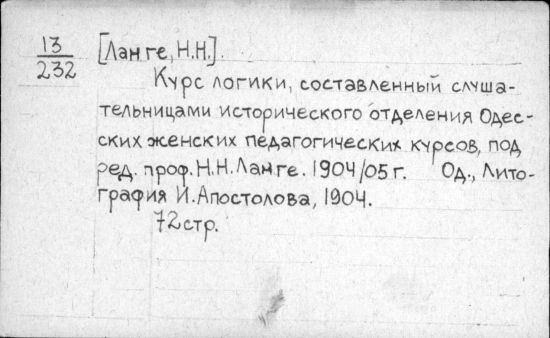 13
232
[Ланге, Н.Н.].
Курс логики, составленный слуша-
тельницами исторического отделения Одес-
ских женских педагогических курсов, под
ред. проф. Н.Н.Ланге. 1904/05 г. Од., Лито-
графия И.Апостолова, 1904.
72 стр.